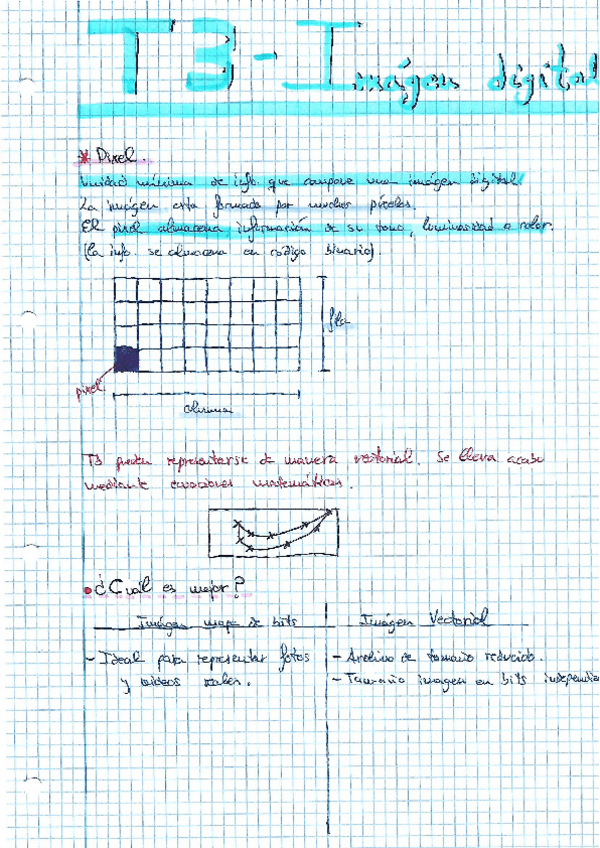 T3 - Imágen digital
* Pixel.
Unidad mínima de info. que compone una imágen digital
La imágen esta formada por muchos píxeles.
El pixel almacena información de su tono, luminosidad o color.
(la info. se almacena en código binario).
fila
pixel
columna
Tb pueden representarse de manera vectorial. Se lleva acabo
mediante ecuaciones matemáticas.
• ¿Cuál es mejor?
Imágen mapa de bits
Imágen Vectorial
- Ideal para representar fotos
y videos reales.
- Archivo de tamaño reducido.
- Tamaño imagen en bits independien